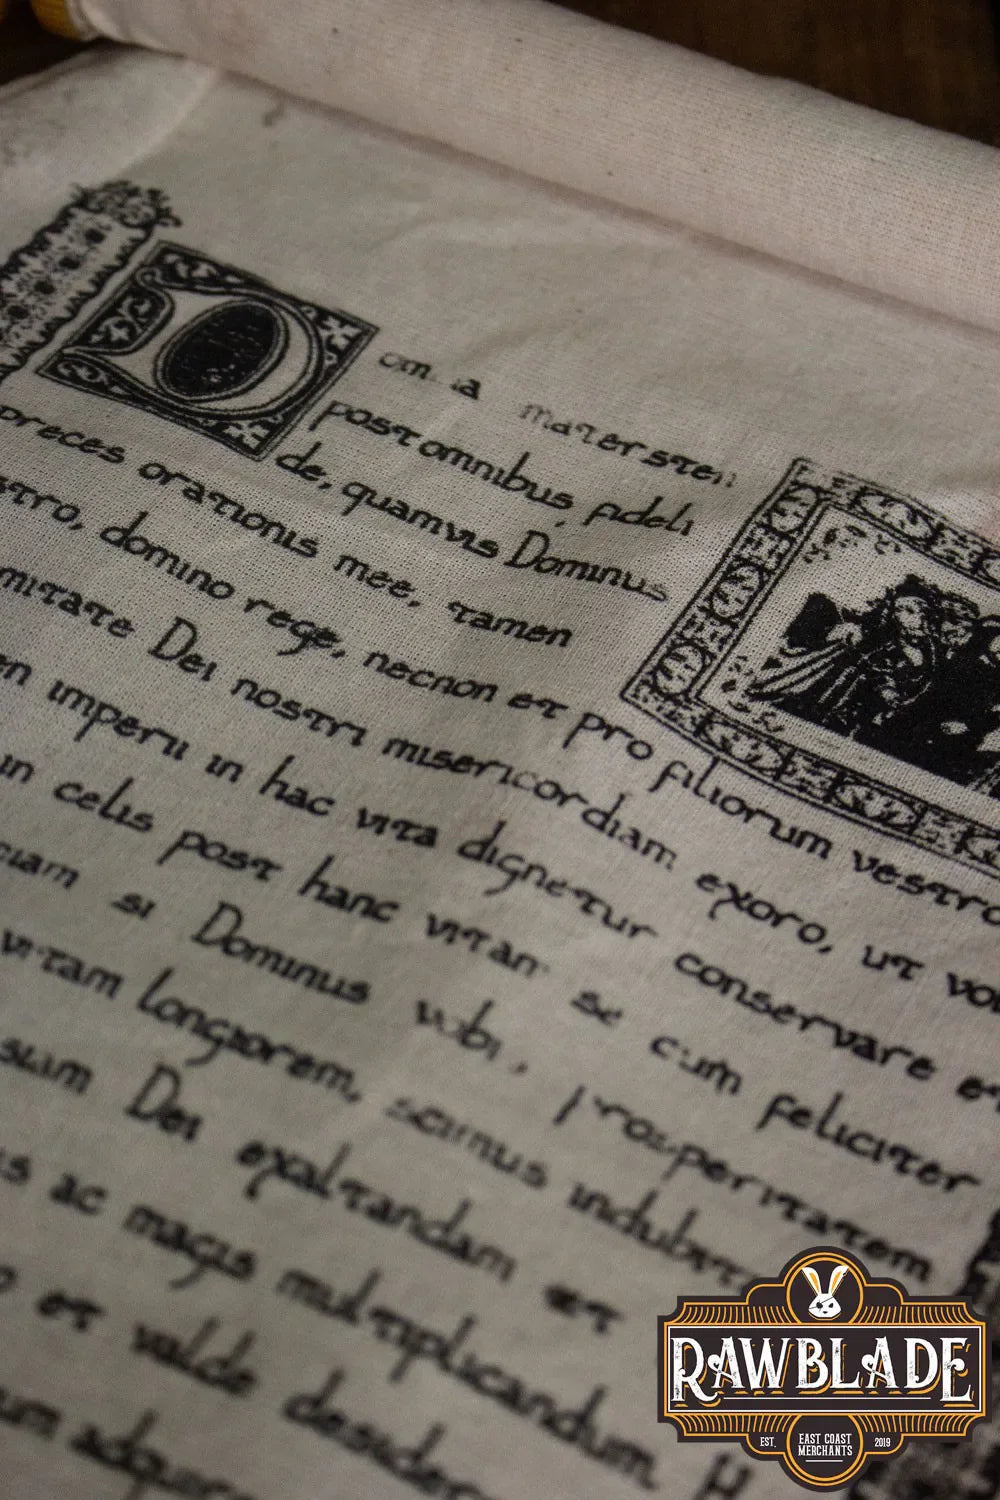 D
mater
post omnibus fideli
de, quamvis Dominus
preces orationis mee, tamen
domino rege, necnon et pro filiorum vestro
Dei nostri misericordiam exoro, ut
imperii in hac vita dignetur conservare et
in celis post hanc vitan se cum feliciter
si Dominus vobi, prosperitatem
vitam longiorem, scimus
Dei exaltandam et
ac magis multiplicandum. H
et valde
RAWBLADE
EST. EAST COAST MERCHANTS 2019